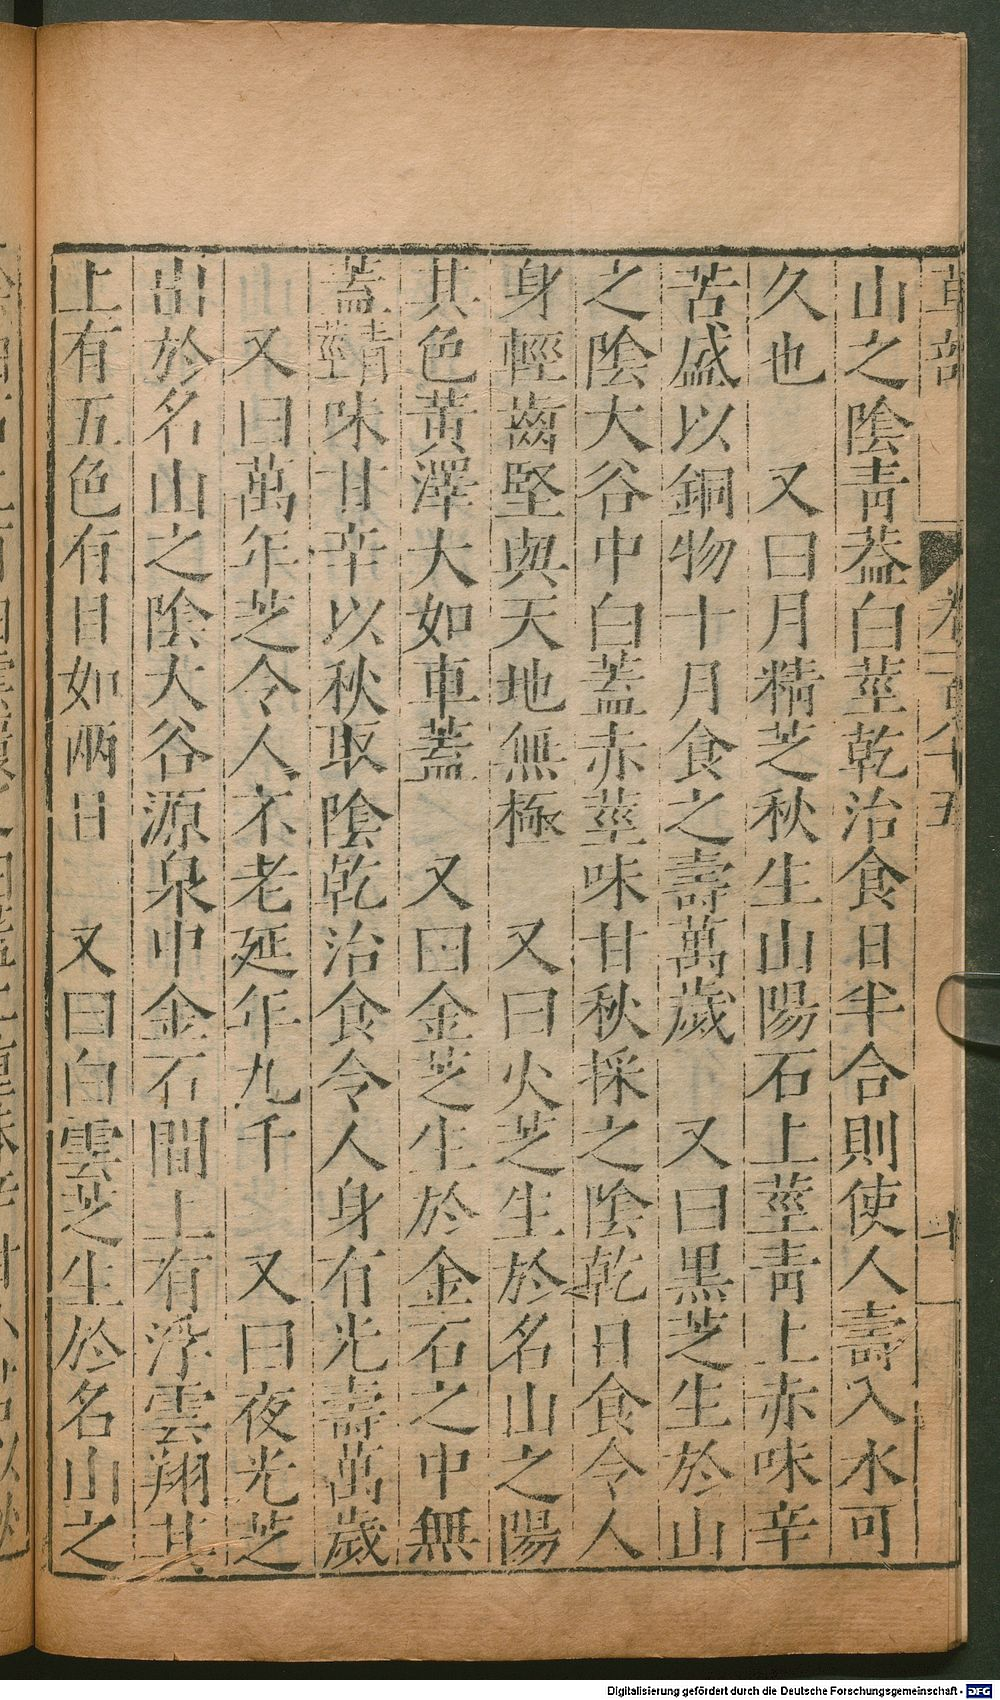 草部 卷一百八十五 十
山之陰青葢白莖乾治食日半合則使人壽入水可
久也 又曰月精芝秋生山陽石上莖青上赤味辛
苦盛以銅物十月食之壽萬歲 又曰黒芝生於山
之陰大谷中白蓋赤莖味甘秋採之陰乾日食令人
身輕齒堅與天地無極 又曰火芝生於名山之陽
其色黃澤大如車蓋 又曰金芝生於金石之中無
蓋莖精味甘辛以秋取陰乾治食令人身有光壽萬歲
又曰萬年芝令人不老延年九千 又曰夜光芝
出於名山之陰大谷源泉中金石間上有浮雲翔其
上有五色有目如兩日 又曰白雲芝生於名山之
Digitalisierung gefördert durch die Deutsche Forschungsgemeinschaft - DFG